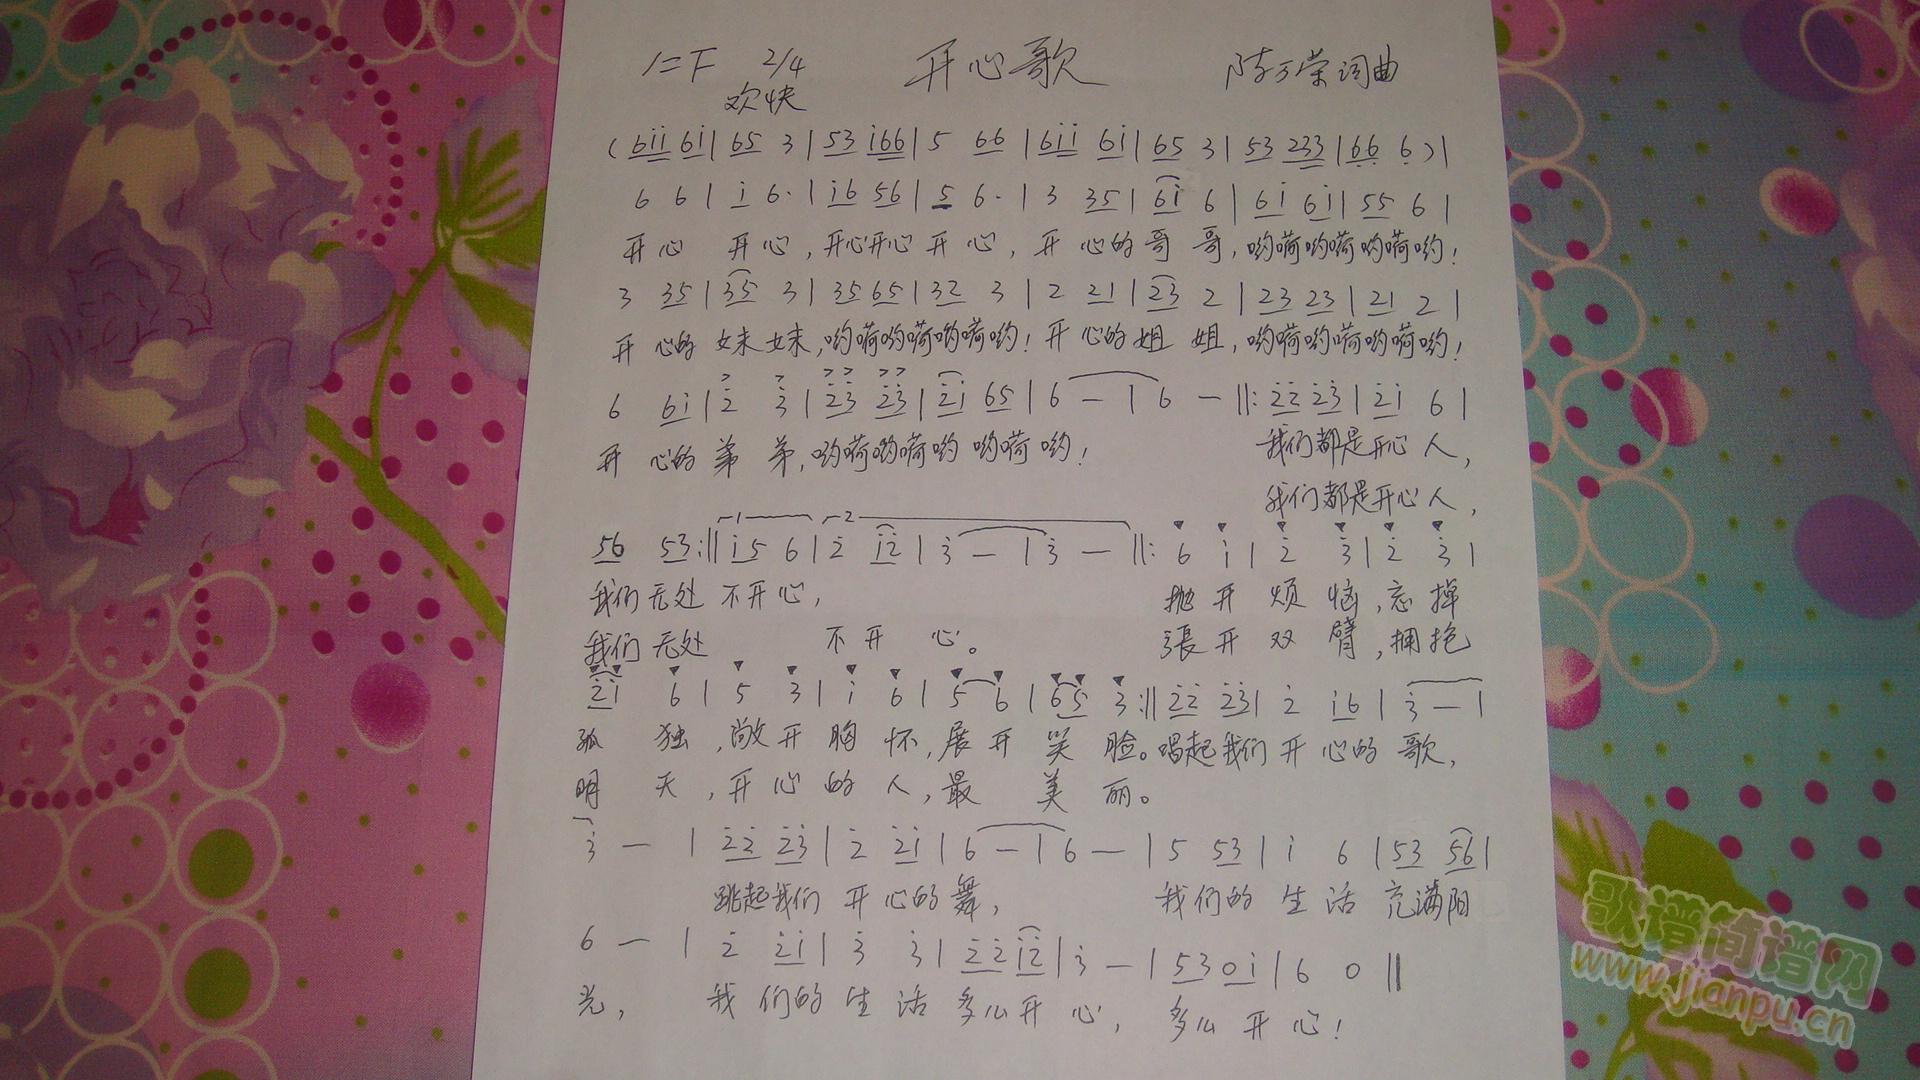 1=F 2/4 开心歌 陈万荣词曲
欢快
(6i̇i̇ 6i̇|65 3|53 i̇66|5 66|6i̇i̇ 6i̇|65 3|53 233|6̣6̣ 6̣)|
6 6|i̇ 6·|i̇6 56|5 6·|3 35|6i̇ 6|6i̇ 6i̇|55 6|
开心 开心,开心开心开心,开心的哥哥,哟嗬哟嗬哟嗬哟!
3 35|35 3|35 65|32 3|2 21|23 2|23 23|21 2|
开心的妹妹,哟嗬哟嗬哟嗬哟!开心的姐姐,哟嗬哟嗬哟嗬哟!
6 6i̇|2̇ 3̇|2̇3̇ 2̇3̇|2̇i̇ 65|6 —|6 —‖:2̇2̇ 2̇3̇|2̇i̇ 6|
开心的弟弟,哟嗬哟嗬哟哟嗬哟! 我们都是开心人,
我们都是开心人,
56 53:‖i̇5 6|2̇ i̇2̇|3̇ —|3̇ —‖:6 i̇|2̇ 3̇|2̇ 3̇|
我们无处不开心, 抛开烦恼,忘掉
我们无处 不开心。 張开双臂,拥抱
2̇i̇ 6|5 3|i̇ 6|5 6|65 3:‖2̇2̇ 2̇3̇|2̇ i̇6|3̇ —|
孤独,敞开胸怀,展开笑脸。唱起我们开心的歌,
明天,开心的人,最美丽。
3̇ —|2̇2̇ 2̇3̇|2̇ 2̇i̇|6 —|6 —|5 53|i̇ 6|53 56|
跳起我们开心的舞, 我们的生活充满阳
6 —|2̇ 2̇i̇|3̇ 3̇|2̇2̇ i̇2̇|3̇ —|53 0i̇|6 0‖
光, 我们的生活多么开心, 多么开心!
歌谱简谱网
www.jianpu.cn